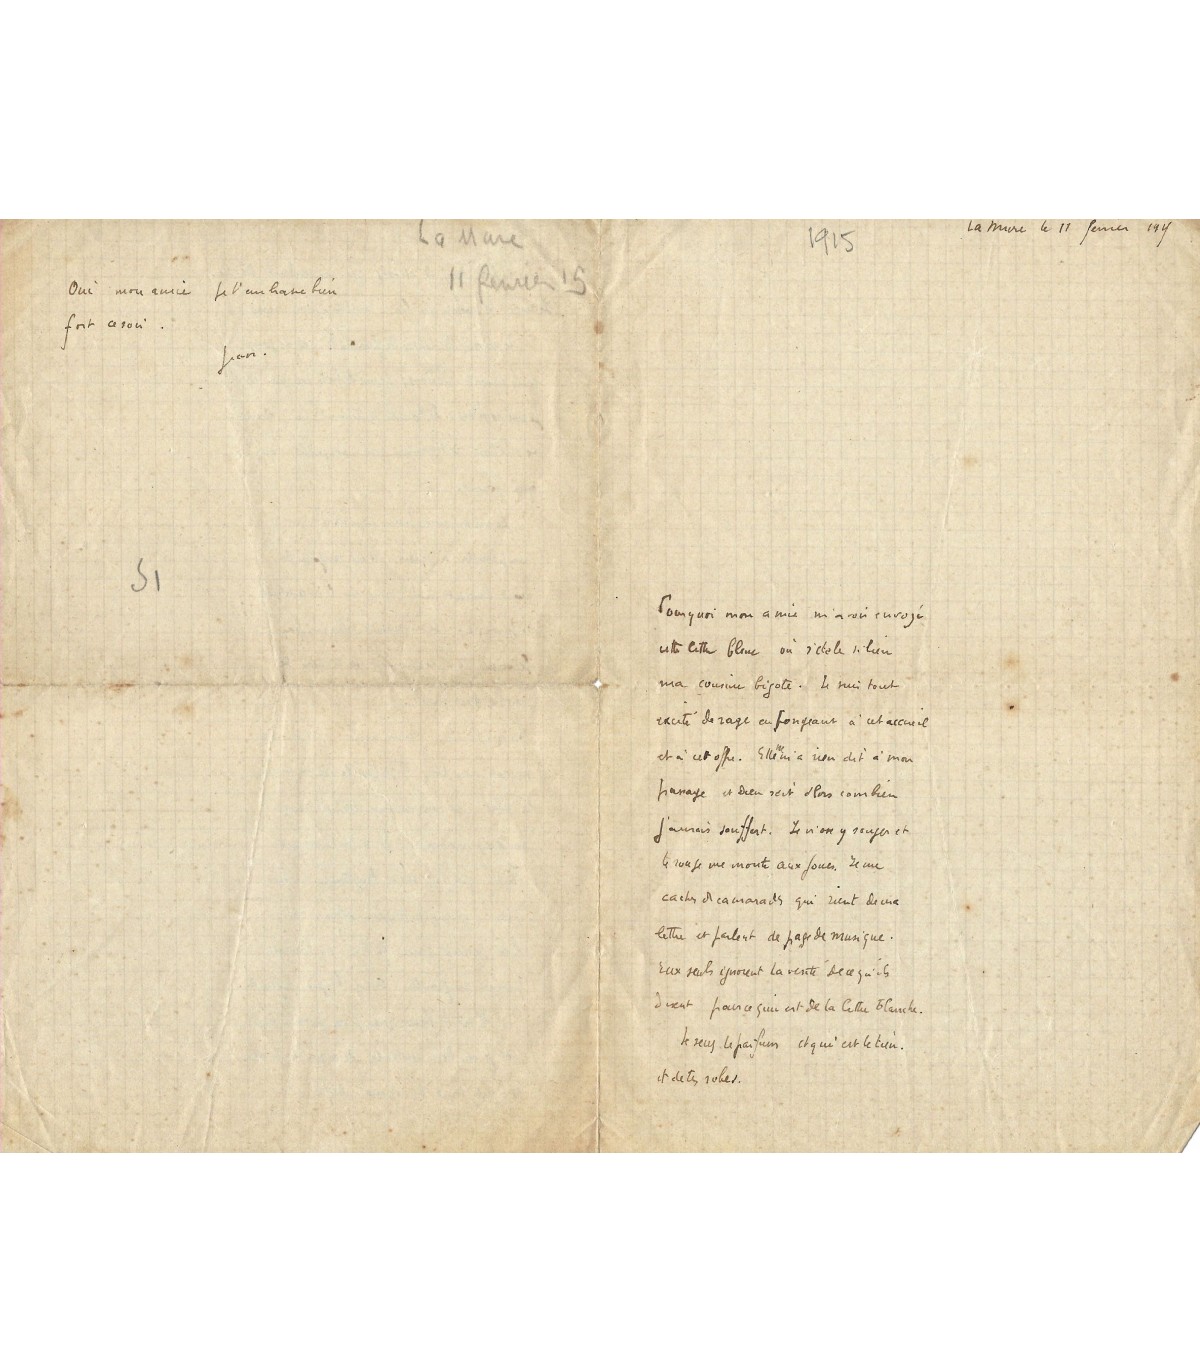 La Mure
11 fevrier 15
Oui mon amie je t'embrasse bien
fort ce soir.
Jean.
51
1915
La Mure le 11 fevrier 191
Pourquoi mon amie m'avoir envoyé
cette lettre bleue où s'étale si bien
ma cousine bigote. Je suis tout
excité de rage en songeant à cet accueil
et à cet offre. Elle ne m'a rien dit à mon
passage et Dieu sait alors combien
j'aurais souffert. Je n'ose y songer et
le rouge me monte aux joues. Je me
cache de camarades qui rient de ma
lettre et parlent de page de musique.
Eux seuls ignorent la vérité de ce qu'ils
disent pour ce qui est de la lettre blanche.
Je sens le parfum et qui est le tien.
et de tes robes.